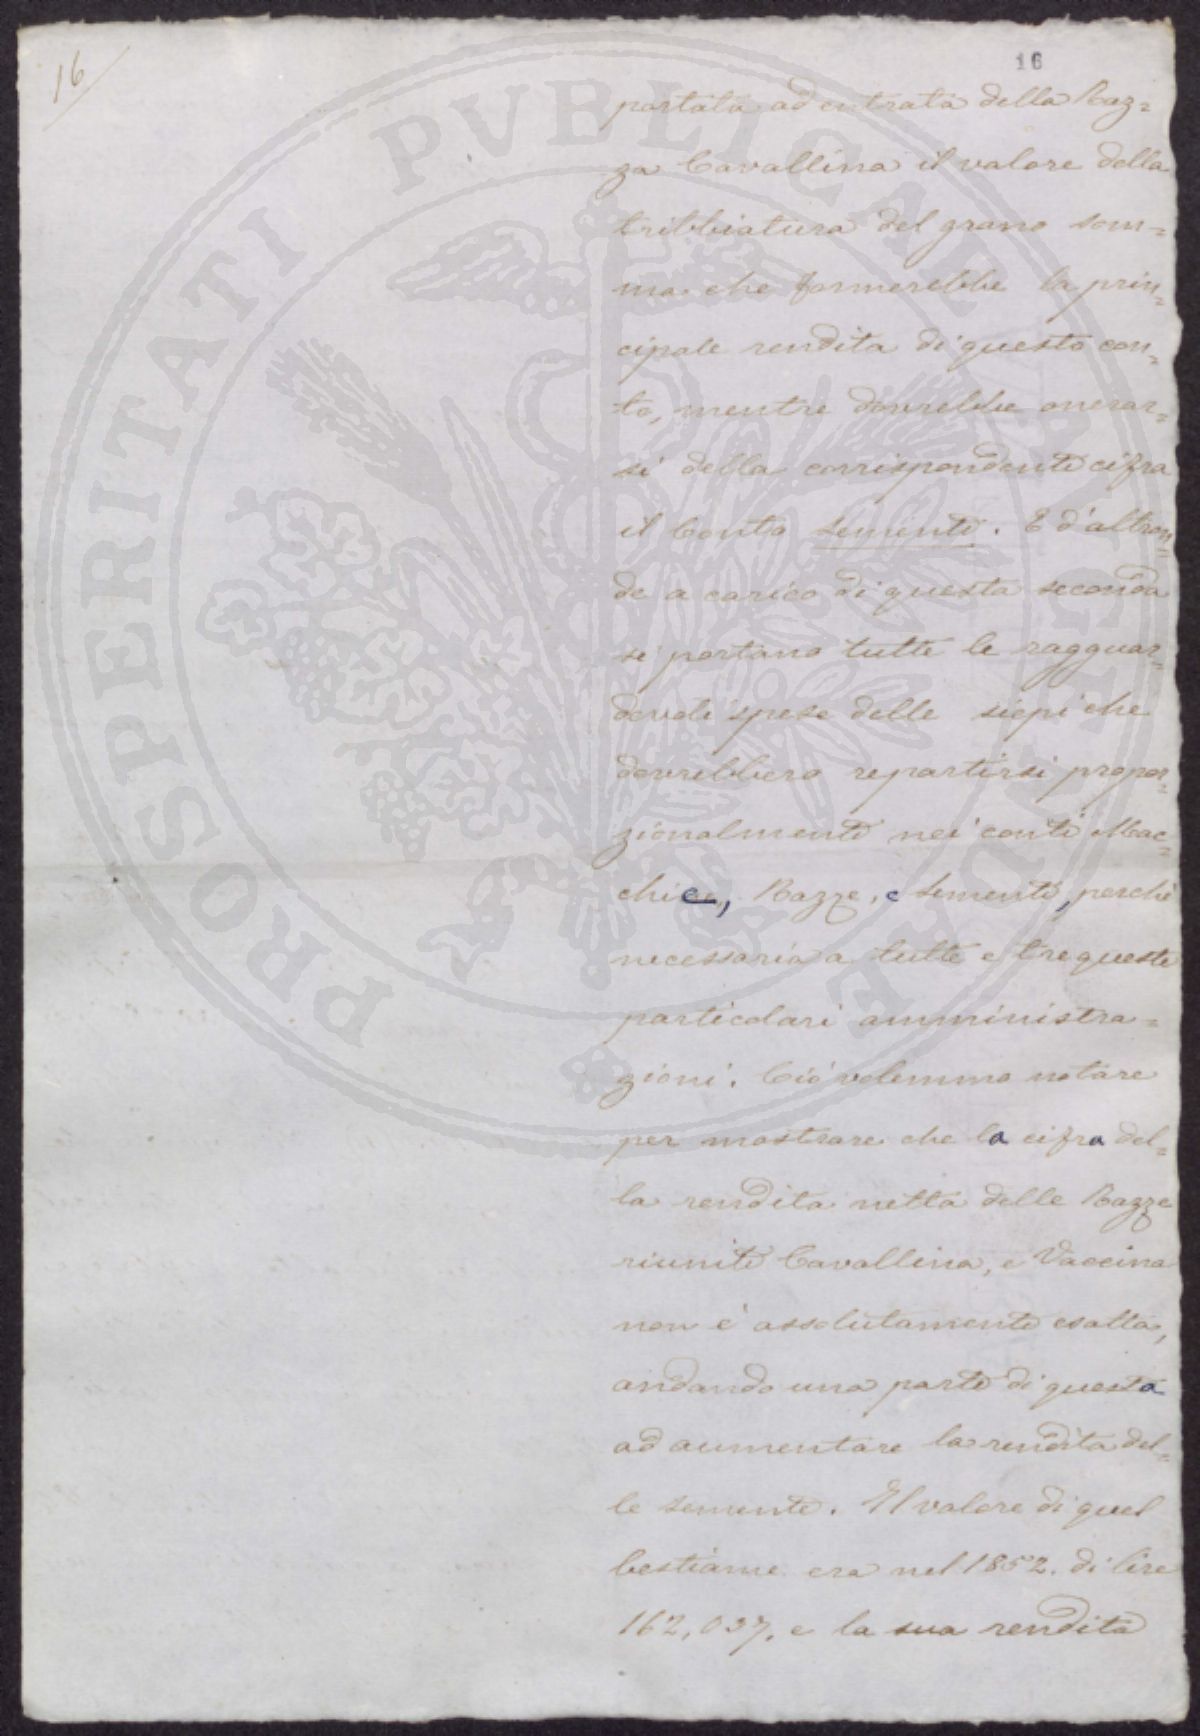 16
16
portata ad entrata della Raz=
za Cavallina il valore della
tribbiatura del grano som=
ma che formerebbe la prin=
cipale rendita di questo con=
to, mentre dovrebbe onerar=
si della corrispondente cifra
il Conto Semente. E d'altron=
de a carico di questa seconda
si portano tutte le ragguar=
devoli spese delle siepi che
dovrebbero repartirsi propor=
zionalmente nei conti Mac=
chie, Razze, e Sementi, perchè
necessaria a tutte e tre queste
particolari amministra=
zioni. Ciò volemmo notare
per mostrare che la cifra del=
la rendita netta delle Razze
riunite Cavallina, e Vaccina
non è assolutamente esatta,
andando una parte di questa
ad aumentare la rendita del=
le semente. Il valore di quel
bestiame era nel 1852. di lire
162,037, e la sua rendita
PROSPERITATI PVBLICAE AVGENDAE